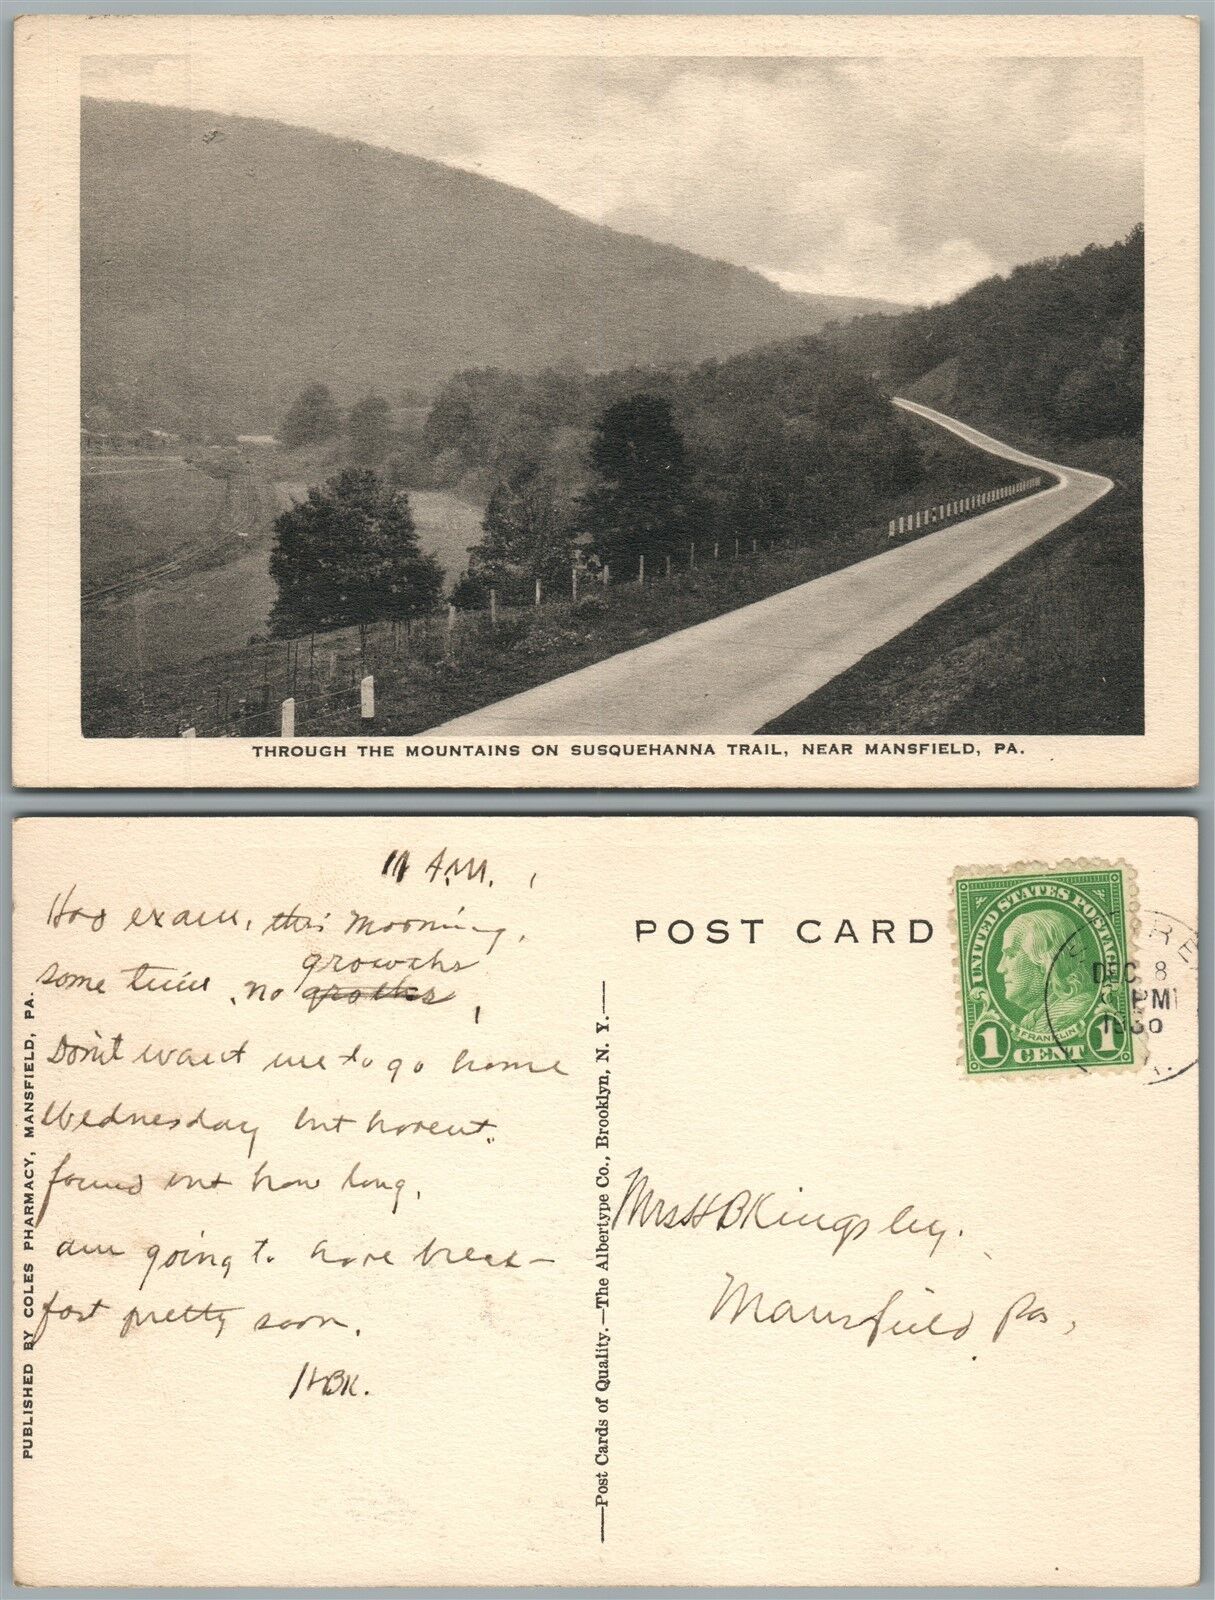 THROUGH THE MOUNTAINS ON SUSQUEHANNA TRAIL, NEAR MANSFIELD, PA.
11 A.M.
Had exam, this morning,
some time, no growths
groths
Don't want me to go home
Wednesday but havent
found out how long.
am going to have break-
fast pretty soon.
HBK.
PUBLISHED BY COLES PHARMACY, MANSFIELD, PA.
—Post Cards of Quality.—The Albertype Co., Brooklyn, N. Y.—
POST CARD
UNITED STATES POSTAGE
FRANKLIN
1 CENT 1
DEC 8
PM
1936
Mrs H B Kingsley.
Mansfield Pa,